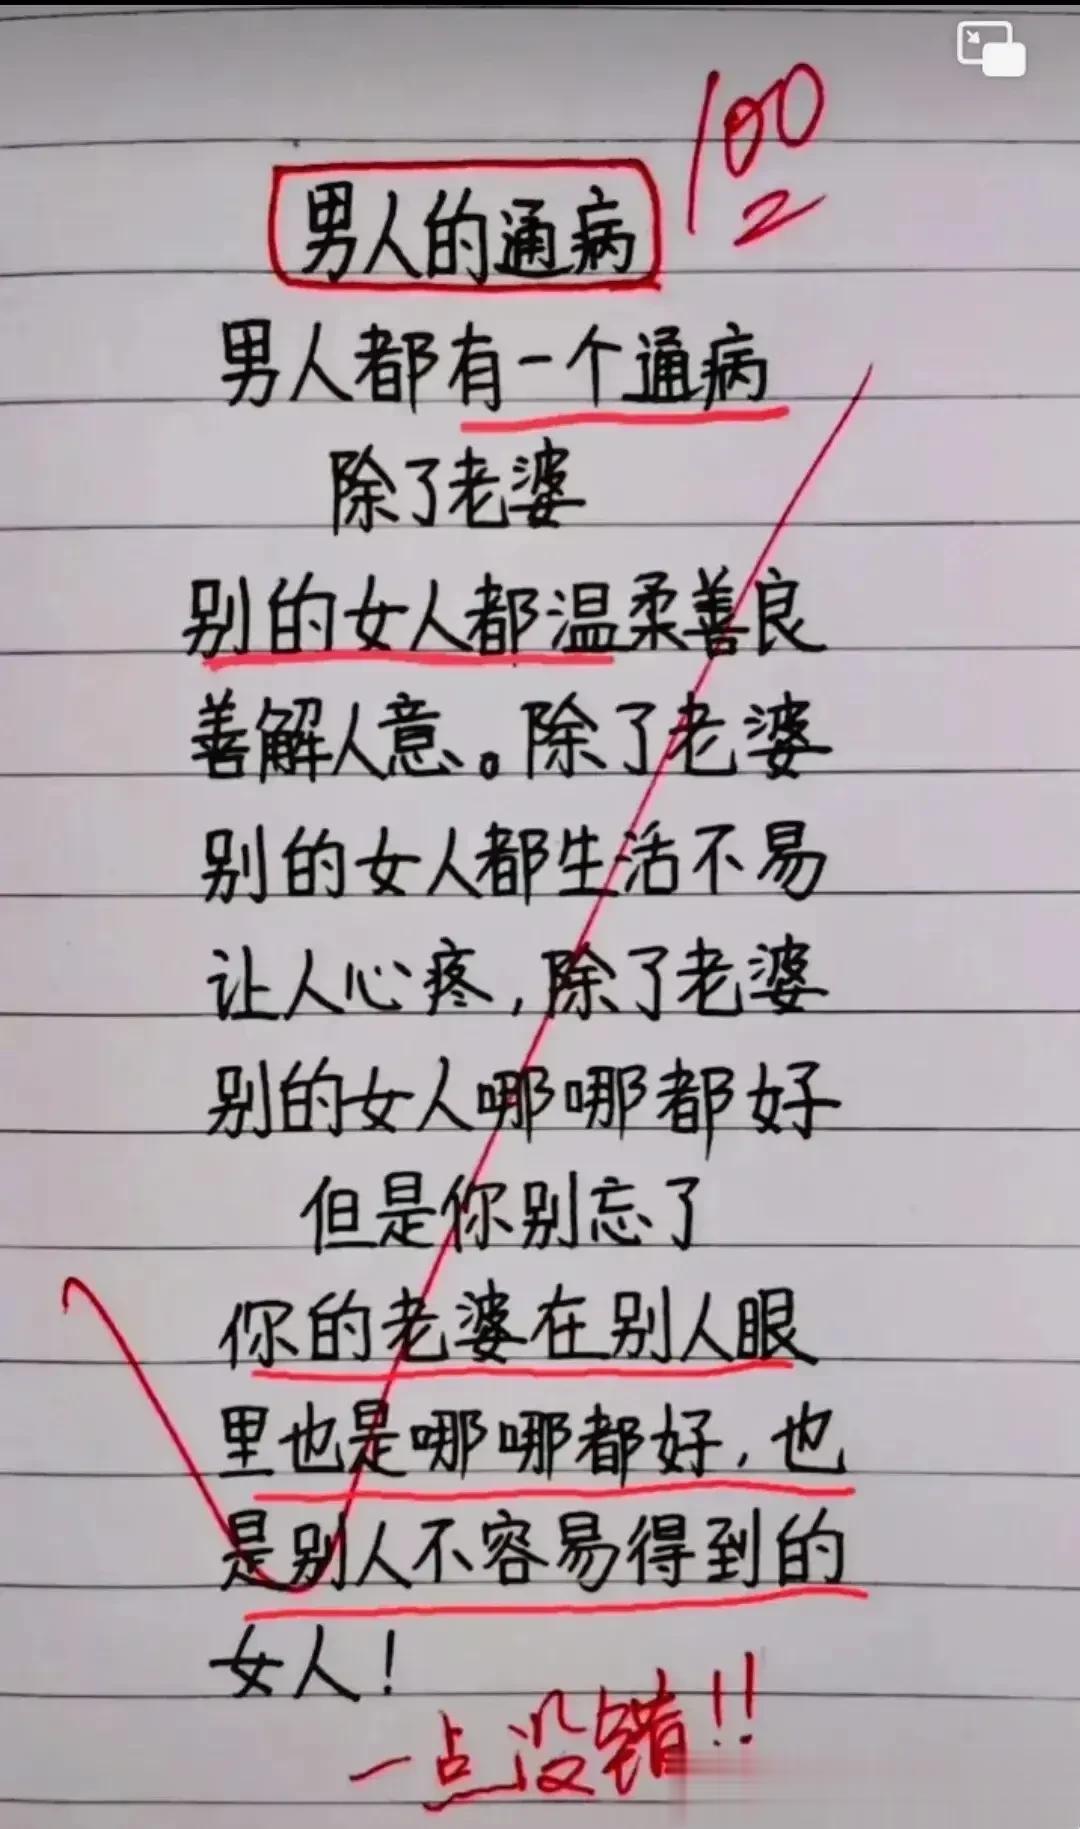 100
2
男人的通病
男人都有一个通病
除了老婆
别的女人都温柔善良
善解人意。除了老婆
别的女人都生活不易
让人心疼,除了老婆
别的女人哪哪都好
但是你别忘了
你的老婆在别人眼
里也是哪哪都好,也
是别人不容易得到的
女人!
一点没错!!